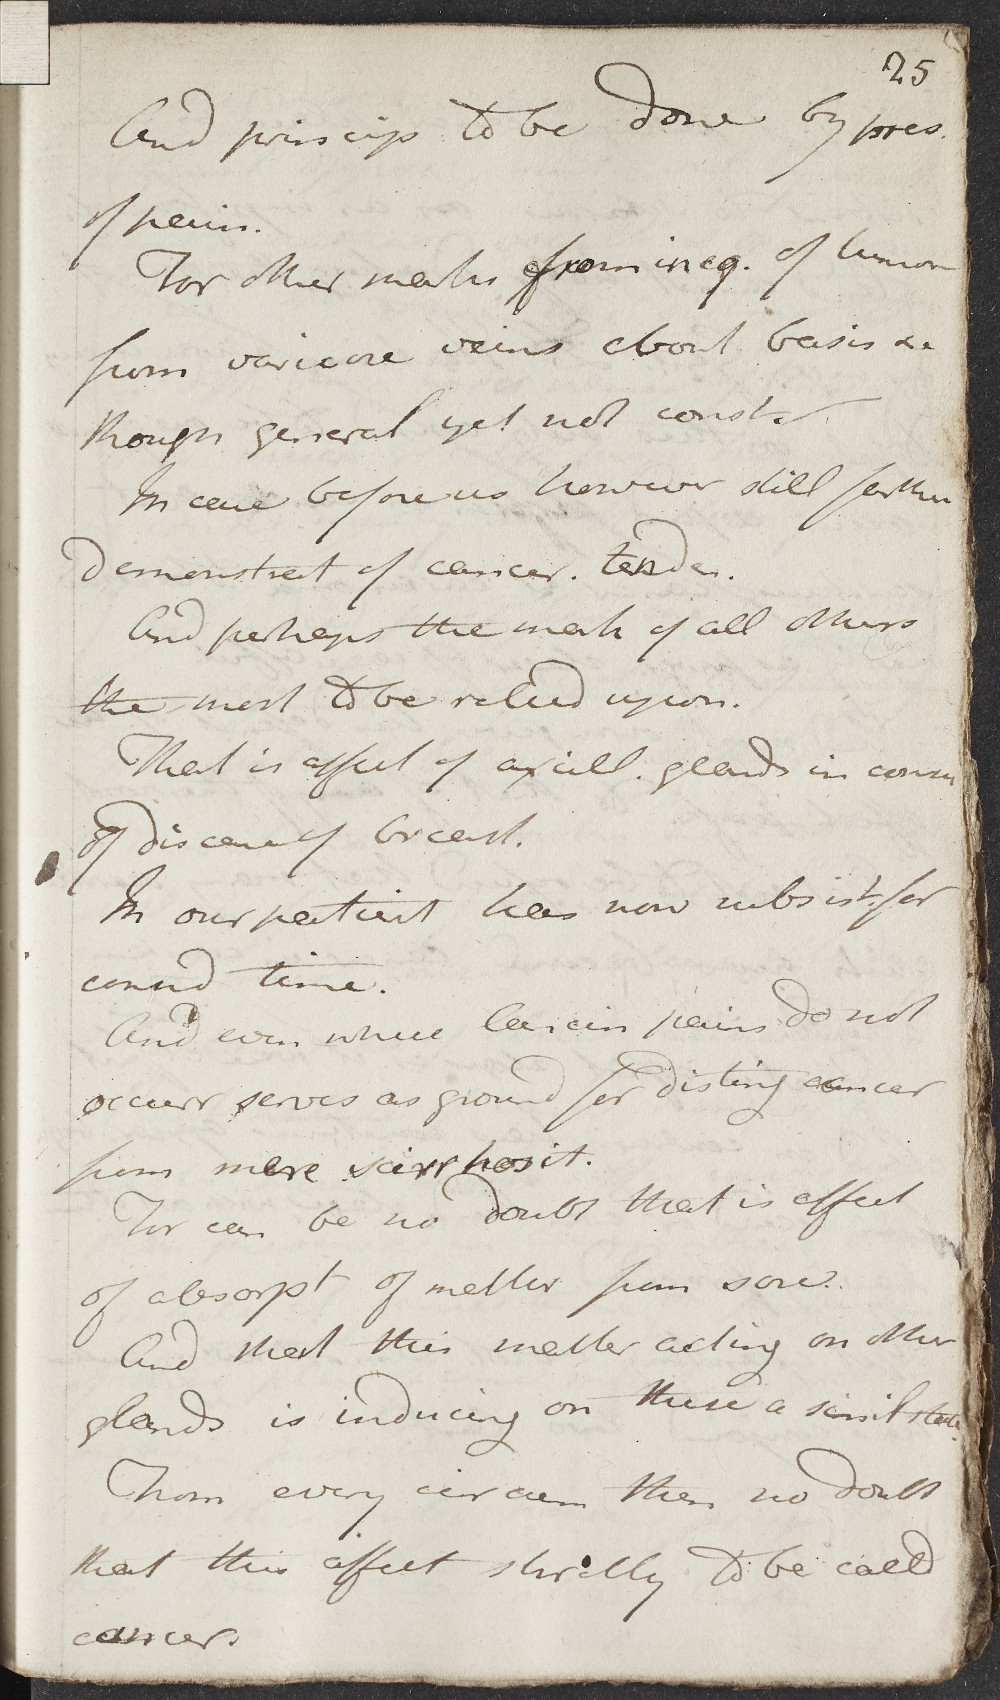 25
And princip to be done by pres.
of pain.
For other marks from ineq. of tumor
from varicose veins about basis &c
though general yet not const.
In case before us however still farther
demonstrat of cancer. tenden.
And perhaps the mark of all others
the most to be relied upon.
That is affect of axill. glands in consu
of disease of breast.
In our patient has now subsist. for
consid time.
And even where lancin pains do not
occurr serves as ground for disting cancer
from mere scirrhosit.
For can be no doubt that is effect
of absorpt of matter from sore.
And that this matter acting on other
glands is inducing on these a simil state.
From every circum then no doubt
that this affect strictly to be called
cancer.